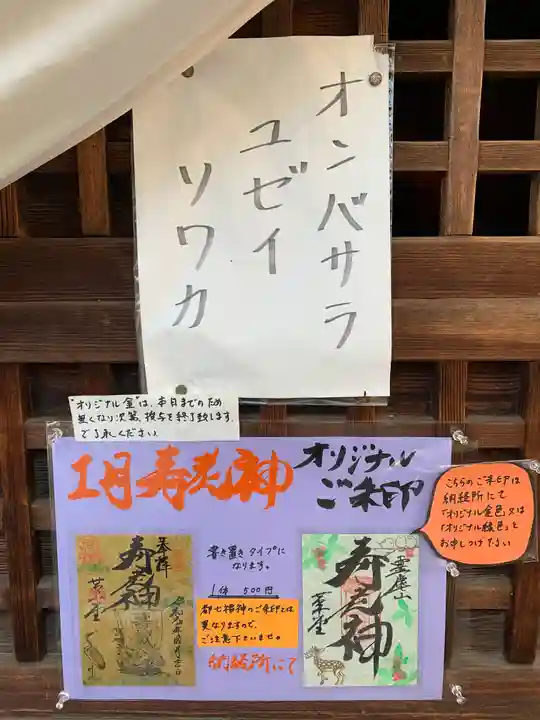 オンバサラ
ユゼイ
ソワカ
"オリジナル金"は、本日までのため
無くなり次第、授与を終了致します。
ご了承ください。
1月寿老神
オリジナル
ご朱印
こちらのご朱印は
納経所にて
「オリジナル金色」又は
「オリジナル緑色」と
お申しつけ下さい
書き置きタイプに
なります。
1体 500円
都七福神のご朱印とは
異なりますので、
ご注意下さいませ。
納経所にて
奉拝
寿老神
革堂
霊麀山
寿老神
革堂